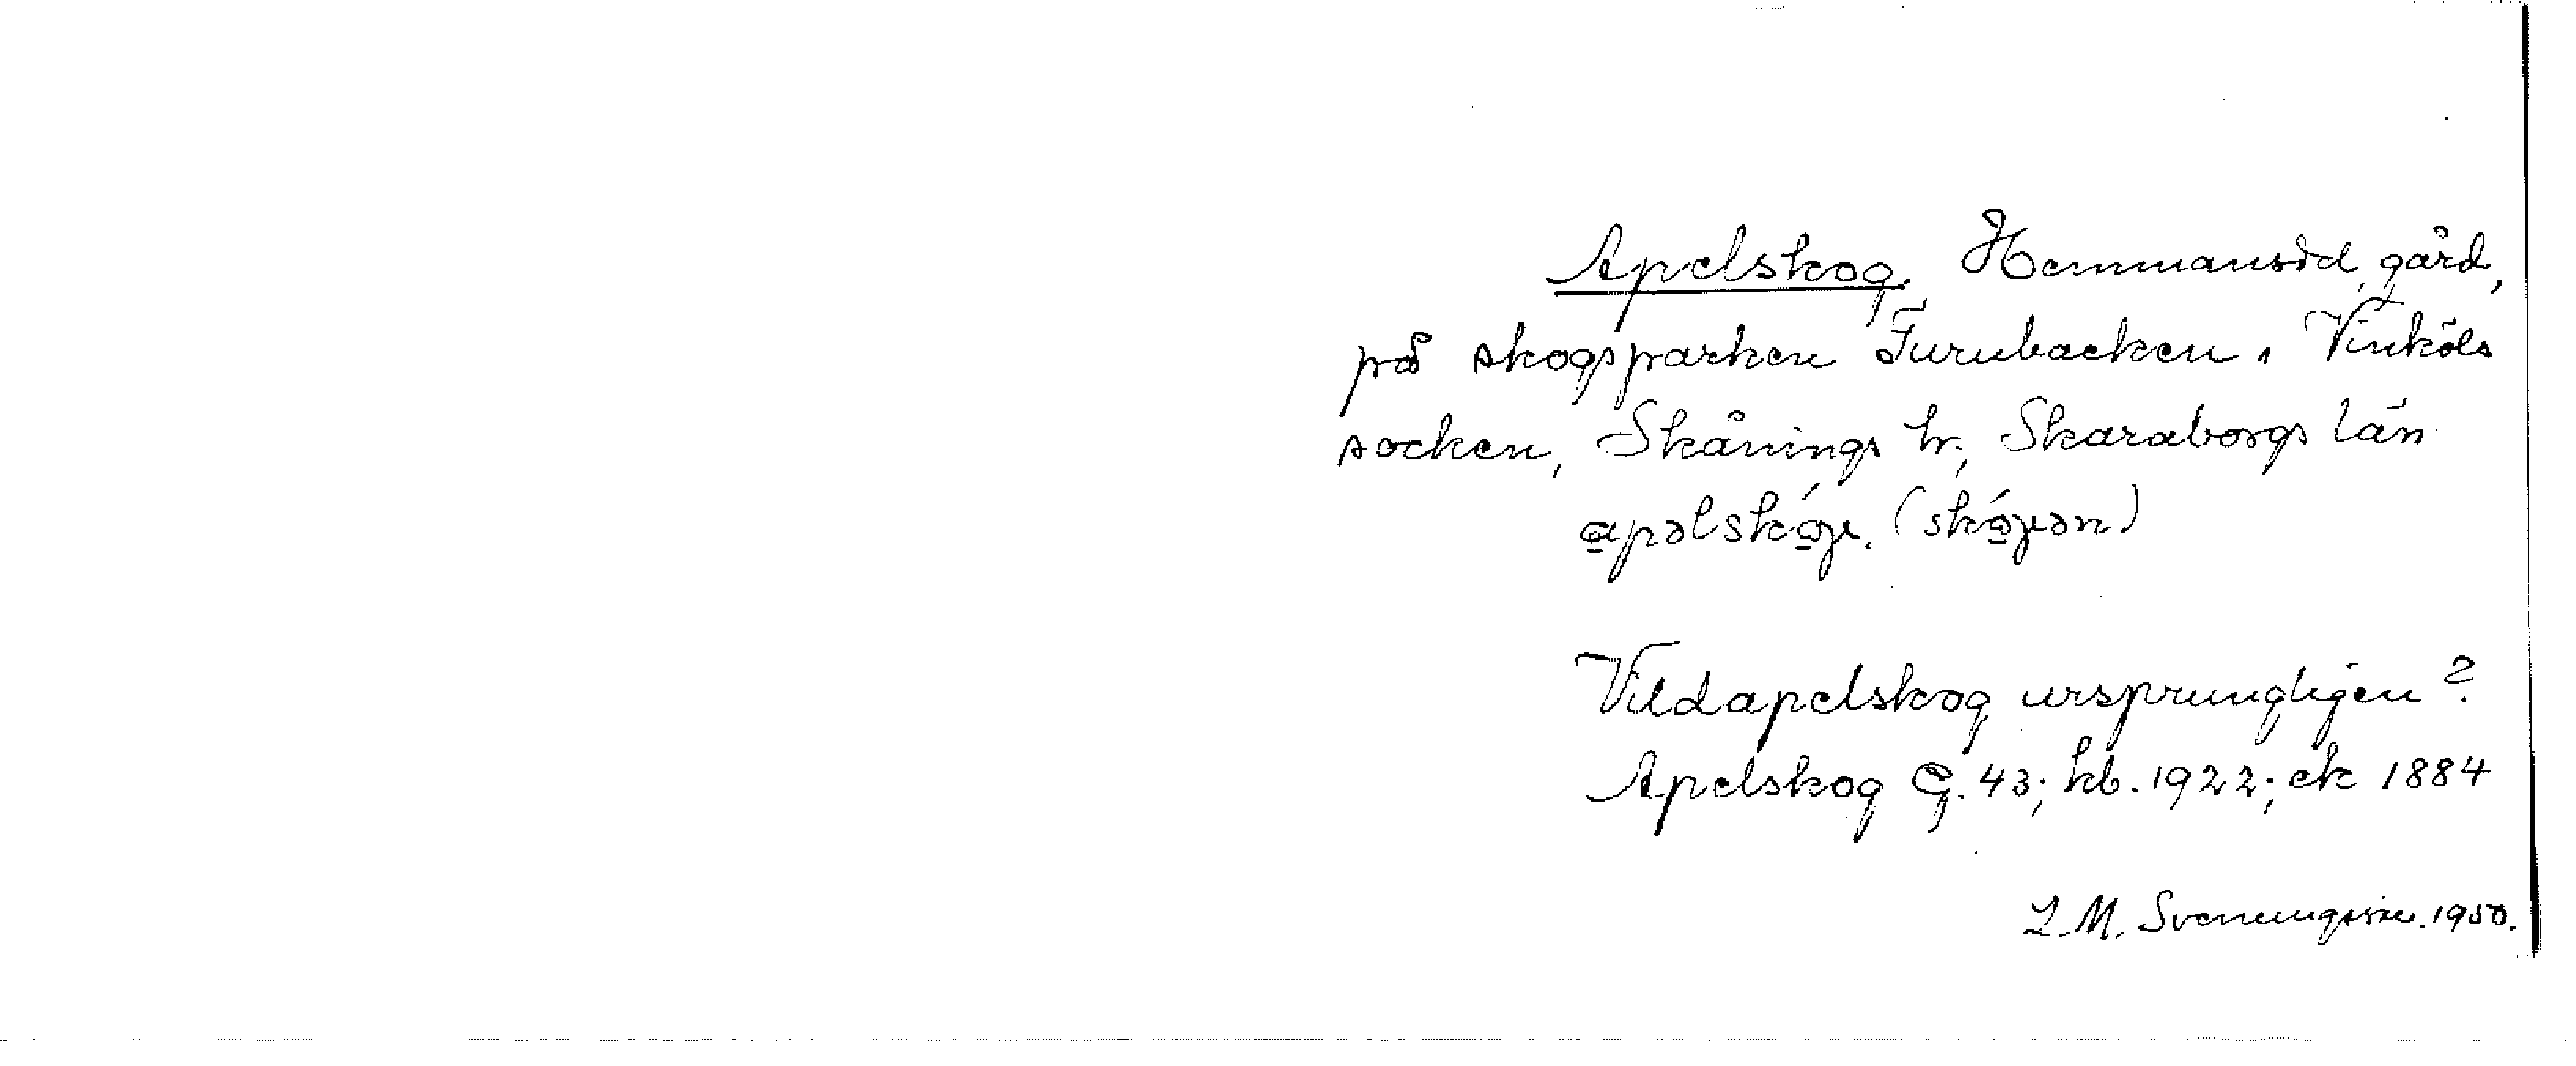 Apelskog. Hemmansd., gård,
på skogsparken Furubacken, Vinköls
socken, Skånings hr, Skaraborgs län
apəlskóγ. (skóγən)
Vildapelskog ursprungligen?
Apelskog G. 43; kb. 1922; ek 1884
L. M. Svenungsson. 1950.